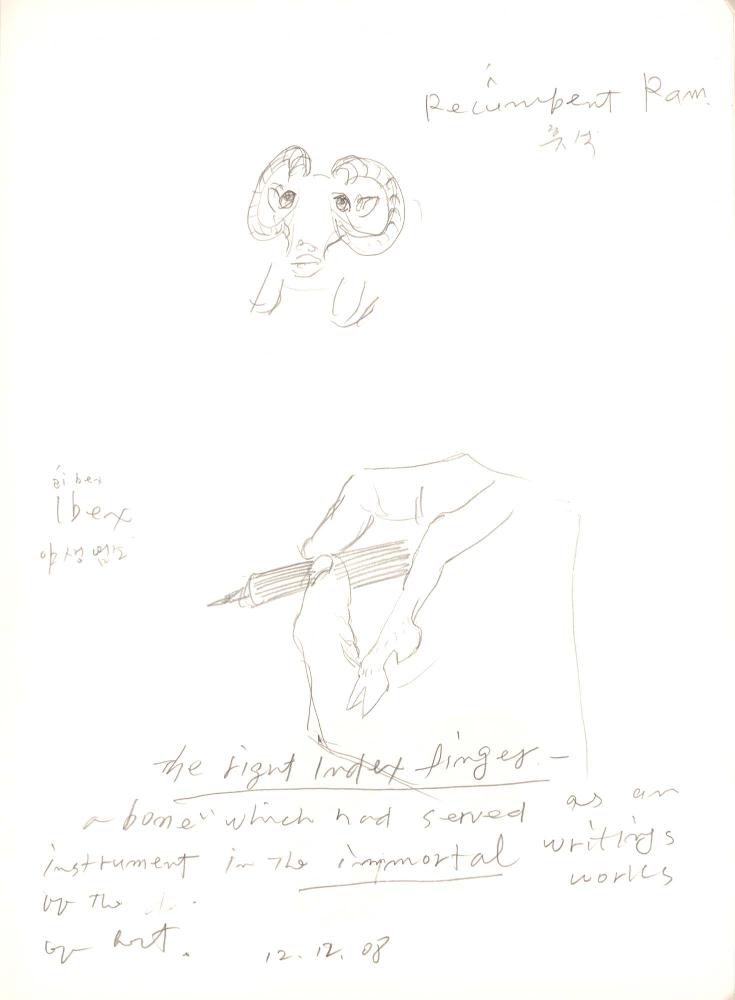 Recumbent Ram.
흑석
ái bex
Ibex
야생염소
the right Index finger. –
a bone" which had served as an
instrument in the immortal writings
of the works
of Art.
12. 12. 08